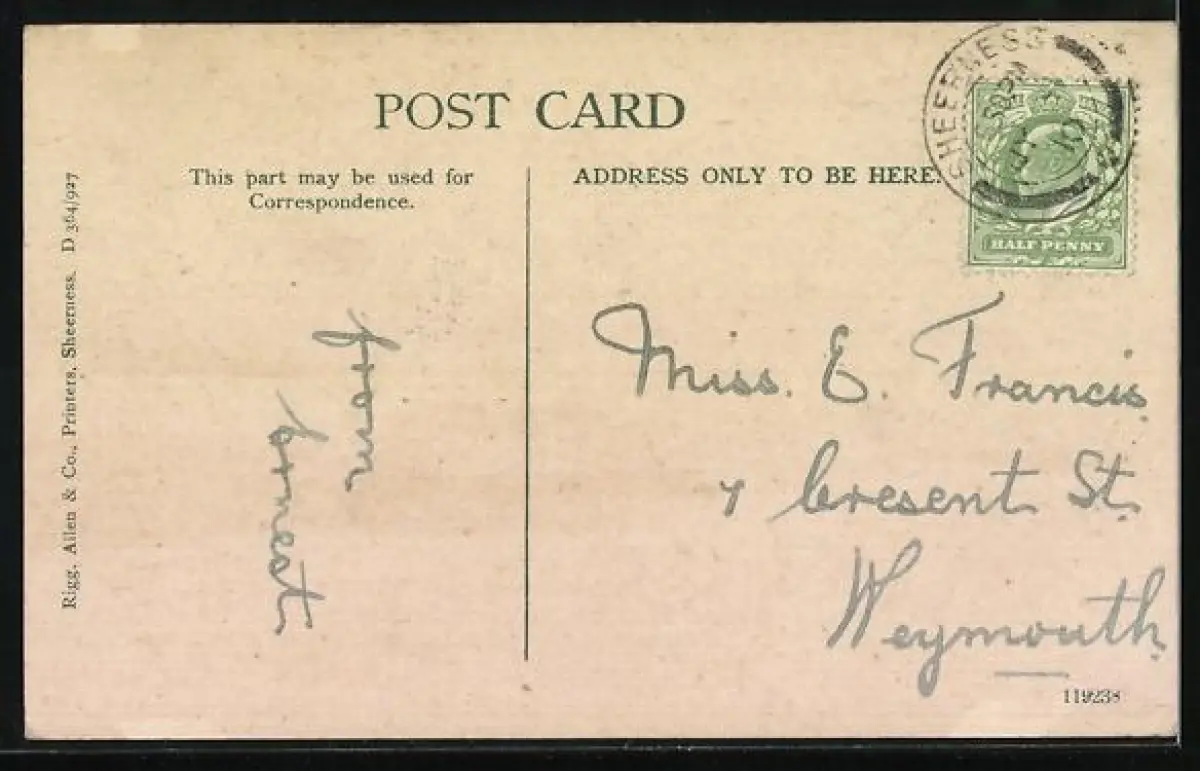 POST CARD
This part may be used for
Correspondence.
ADDRESS ONLY TO BE HERE.
SHEERNESS
10
HALF PENNY
Rigg, Allen & Co., Printers, Sheerness. D 364/927
from
Ernest
Miss. E. Francis
7 Cresent St.
Weymouth
119238